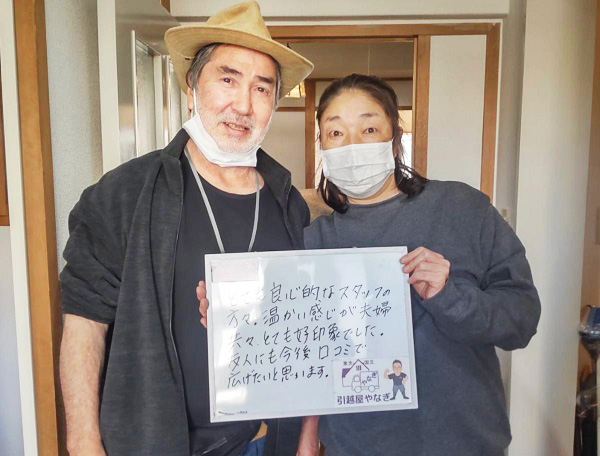 とても良心的なスタッフの
方々。温かい感じが夫婦
共々、とても好印象でした。
友人にも今後口コミで
広げたいと思います。
東京 国立
引越屋やなぎ